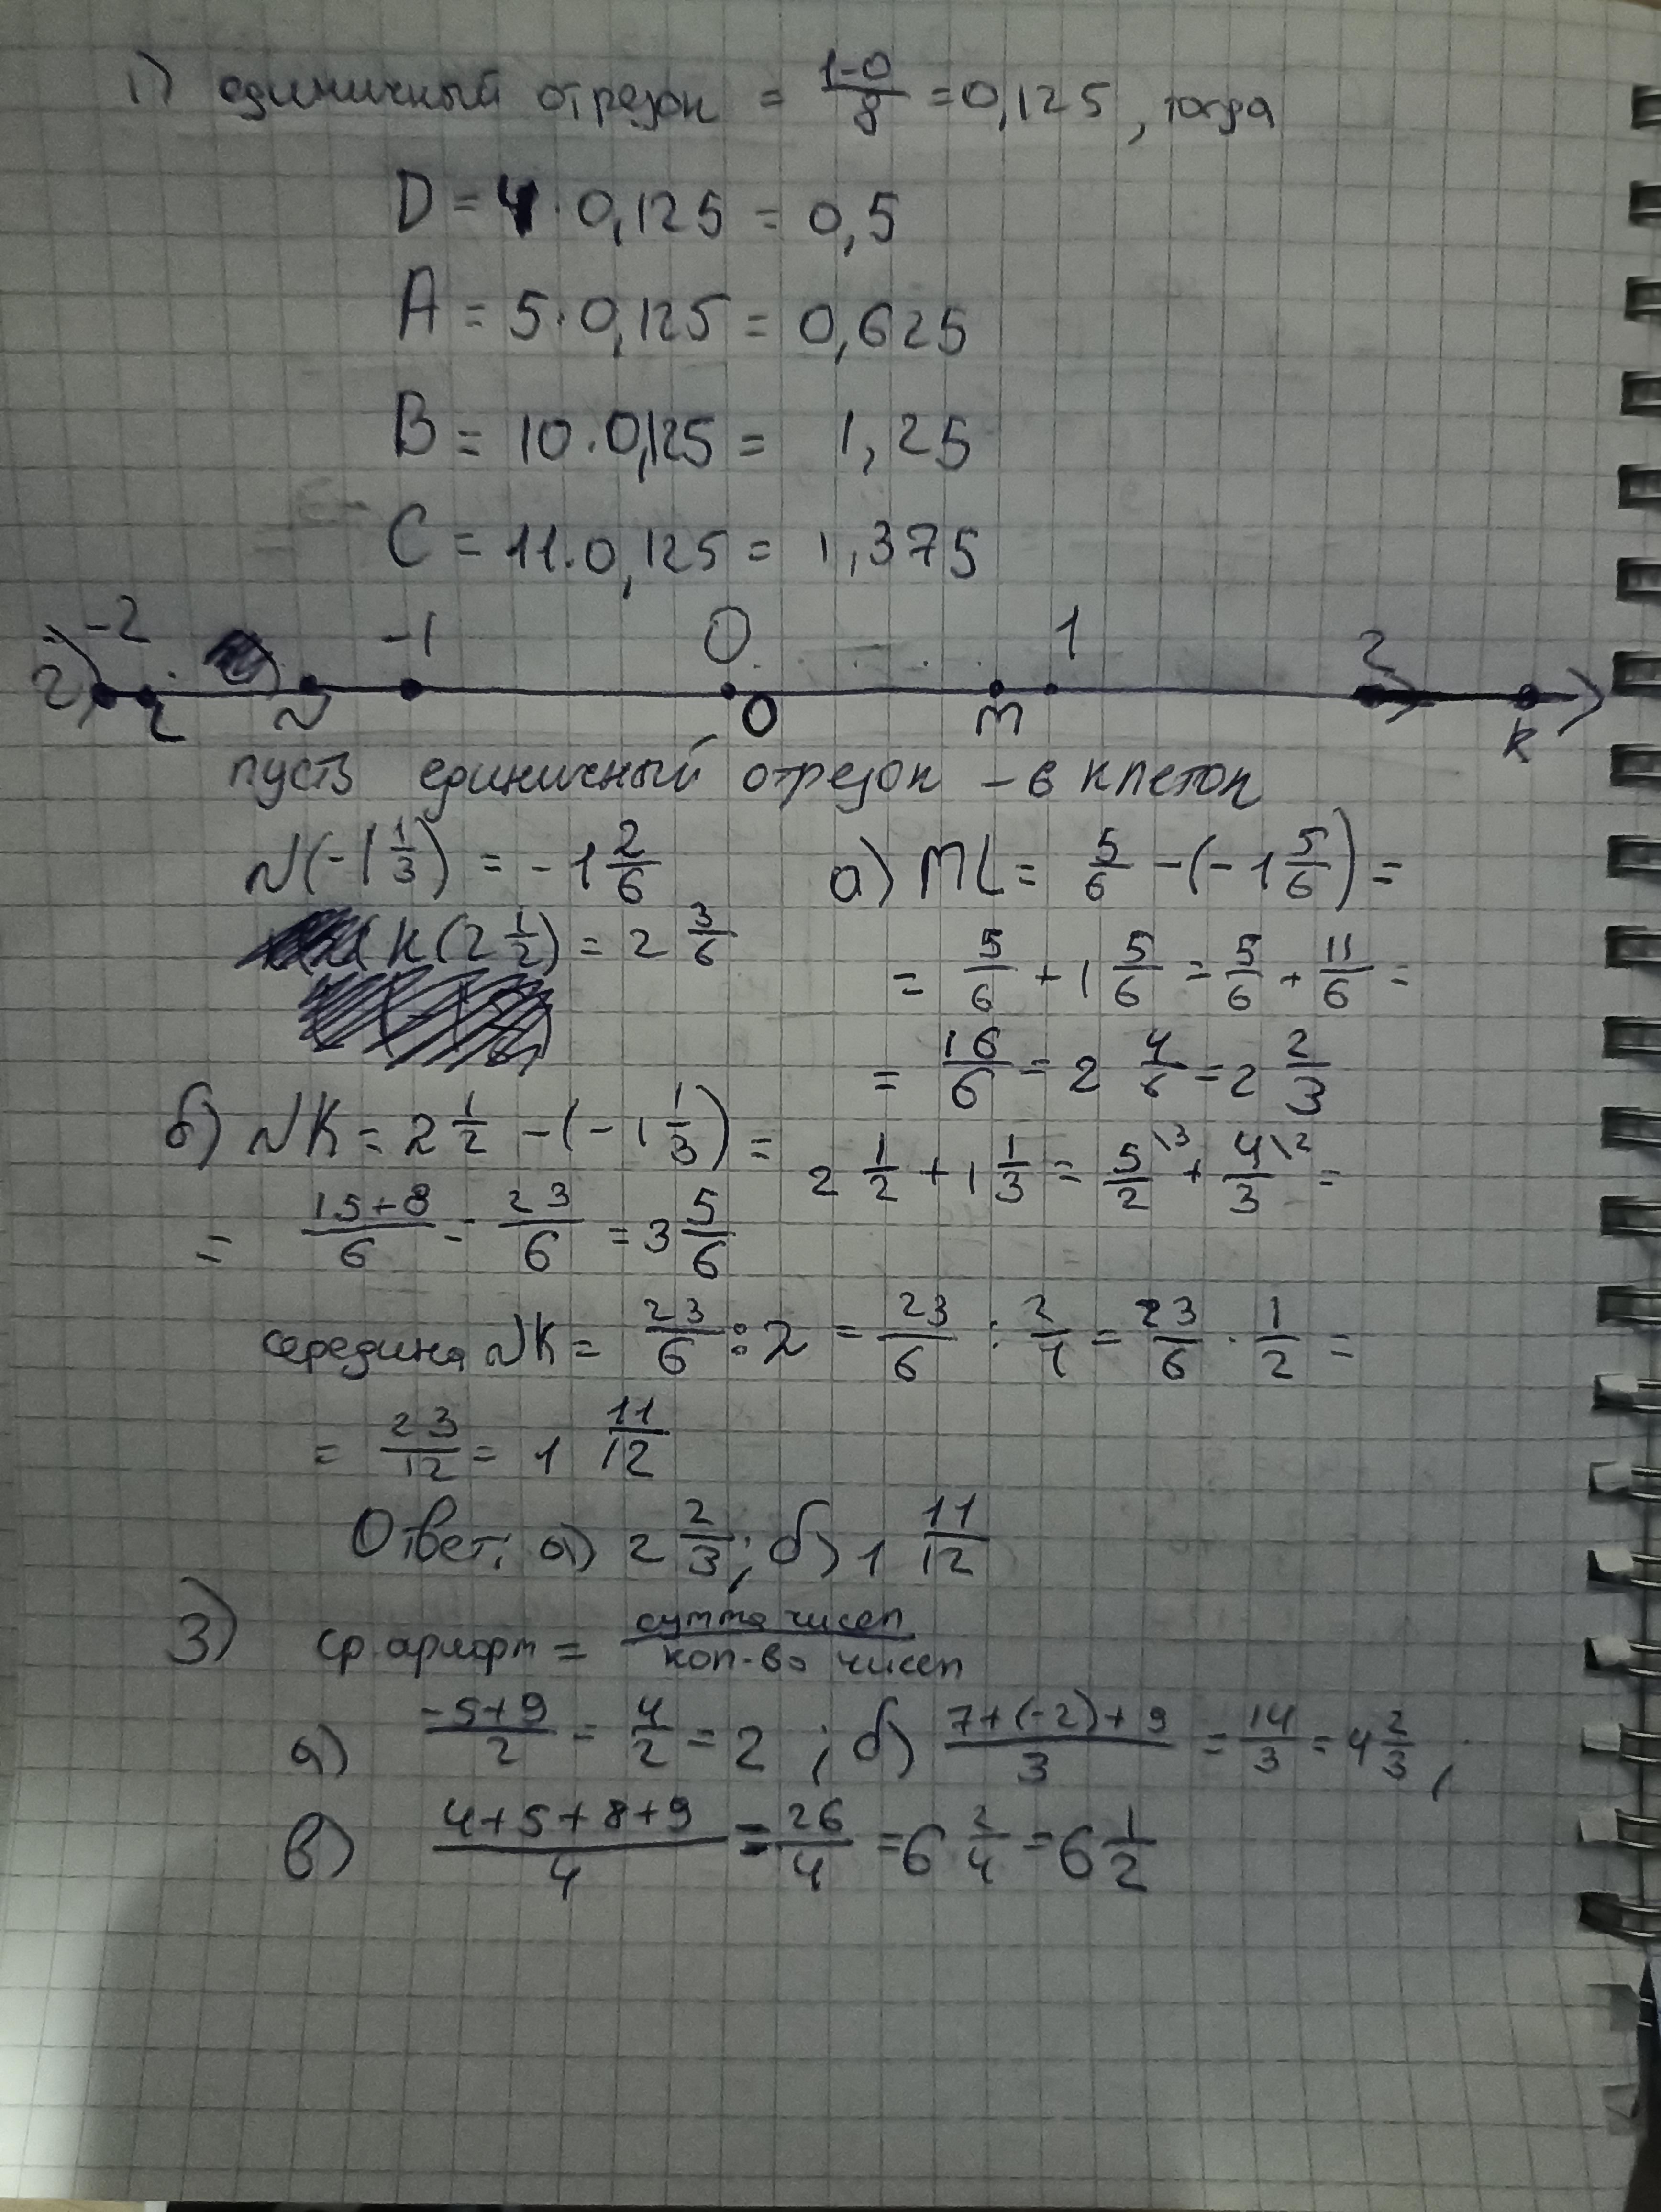 1) единичный отрезок = (1-0)/8 = 0,125, тогда
D = 4 · 0,125 = 0,5
A = 5 · 0,125 = 0,625
B = 10 · 0,125 = 1,25
C = 11 · 0,125 = 1,375
-2 -1 0 1 2
2) L N O M K
пусть единичный отрезок – 6 клеток
N(-1 1/3) = -1 2/6
K(2 1/2) = 2 3/6
а) ML = 5/6 - (-1 5/6) =
= 5/6 + 1 5/6 = 5/6 + 11/6 =
= 16/6 = 2 4/6 = 2 2/3
б) NK = 2 1/2 - (-1 1/3) = 2 1/2 + 1 1/3 = 5/2 \3 + 4/3 \2 =
= (15+8)/6 = 23/6 = 3 5/6
середина NK = 23/6 : 2 = 23/6 : 2/1 = 23/6 · 1/2 =
= 23/12 = 1 11/12
Ответ: а) 2 2/3; б) 1 11/12
3) ср. арифм = сумма чисел / кол-во чисел
а) (-5+9)/2 = 4/2 = 2 ; б) (7+(-2)+9)/3 = 14/3 = 4 2/3 ;
в) (4+5+8+9)/4 = 26/4 = 6 2/4 = 6 1/2